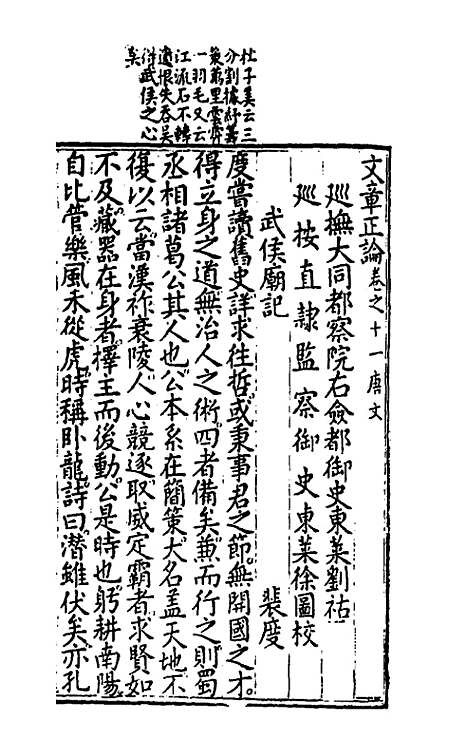 杜子美云三
分割據紆籌
策萬里雲霄
一羽毛又云
江流石不轉
遺恨失吞吳
得武侯之心
矣
文章正論卷之十一唐文
廵撫大同都察院右僉都御史東萊劉祜
廵按直隸監察御史東萊徐圖校
武侯廟記 裴度
度嘗讀舊史詳求往哲或秉事君之節無開國之才
得立身之道無治人之術四者備矣兼而行之則蜀
丞相諸葛公其人也公本系在簡策大名蓋天地不
復以云當漢祚衰陵人心競逐取威定霸者求賢如
不及藏器在身者擇主而後動公是時也躬耕南陽
自比管樂風未從虎時稱卧龍詩曰潛雖伏矣亦孔